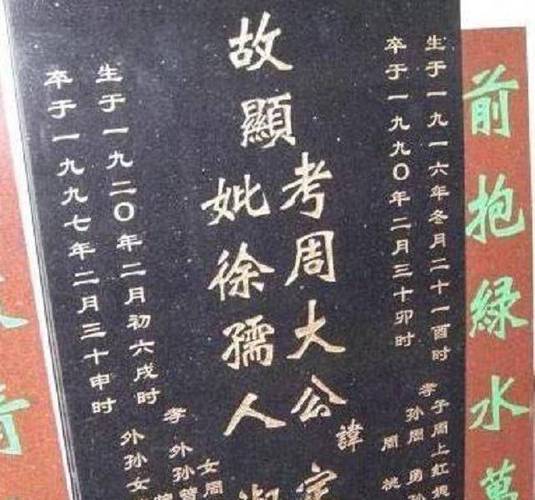 前抱綠水萬
生于一九一六年冬月二十一酉时
卒于一九九〇年二月三十卯时
孝子周上红
孙周勇孙
周桃
故顯
考周大公諱定
妣徐孺人
女周
孝外孙
外孙女
生于一九二〇年二月初六戌时
卒于一九九七年二月三十申时